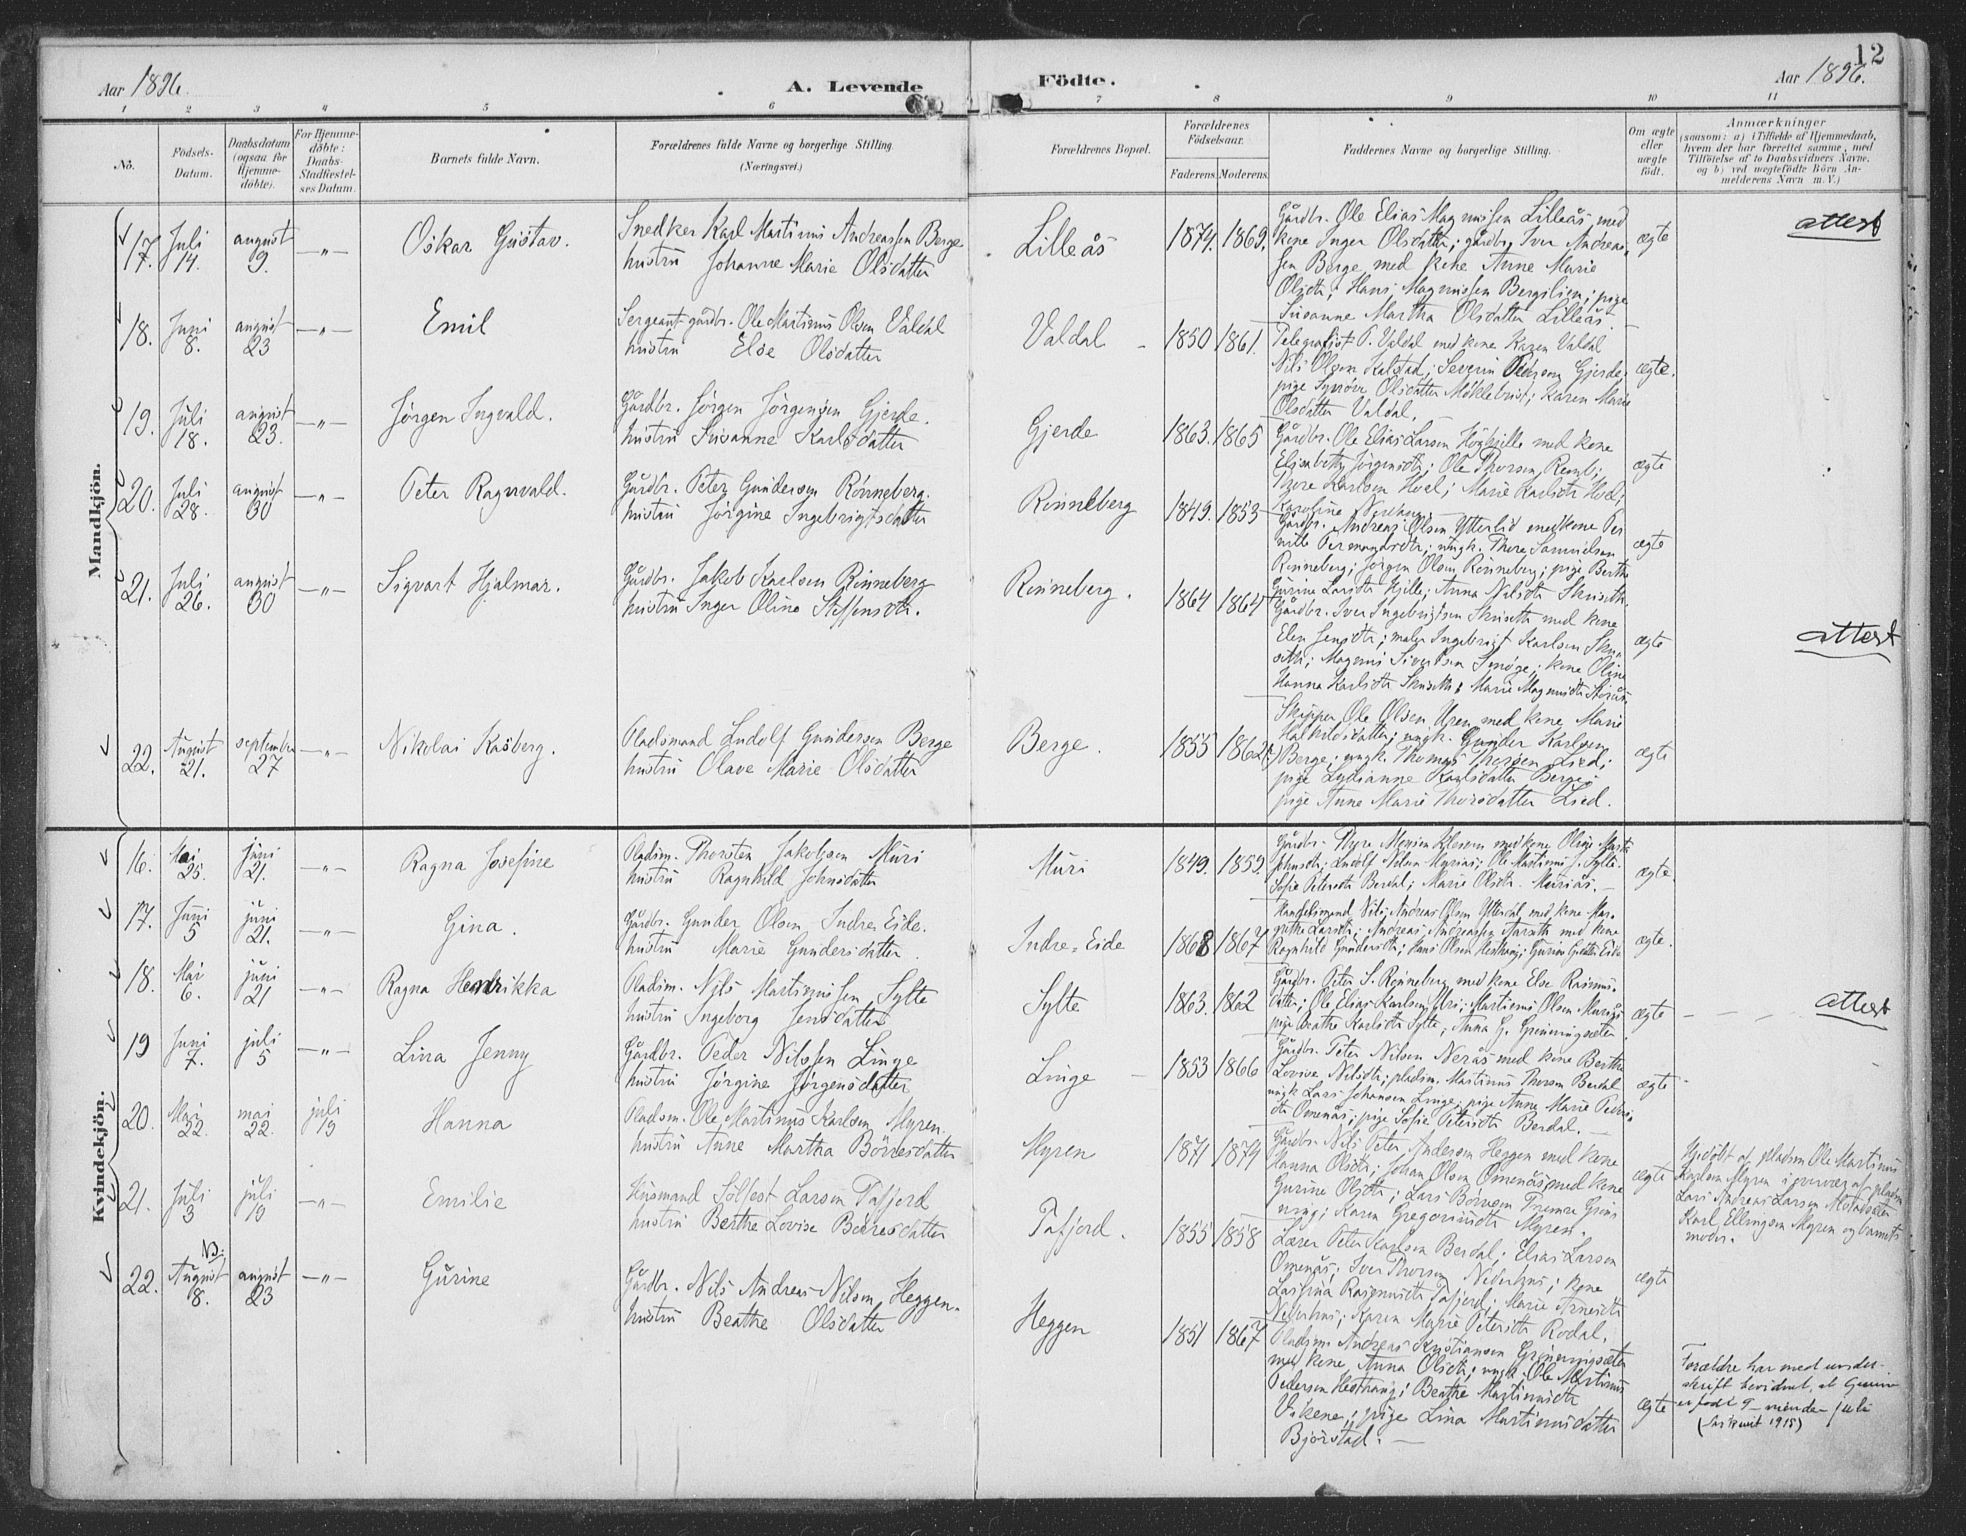 12
Aar 1896. A. Levende Födte. Aar 1896.
1 2 3 4 5 6 7 8 9 10 11
No. Födsels-Datum. Daabsdatum (ogsaa for Hjemme-döbte). For Hjemme-döbte: Daabs-Stadfæstel-ses Datum. Barnets fulde Navn. Forældrenes fulde Navne og borgerlige Stilling. (Næringsvei.) Forældrenes Bopæl. Forældrenes Födselsaar. Faderens Moderens. Faddernes Navne og borgerlige Stilling. Om ægte eller uægte födt. Anmærkninger
(saasom: a) i Tilfælde af Hjemmedaab,
hvem der har forrettet samme, med
Tilföielse af to Daabsvidners Navne.
og b) ved uægtefödte Börn An-
melderens Navn m. V.)
Mandkjön.
17. Juli 14. august 9. —"— Oskar Gustav.
Snedker Karl Martinus Andreassen Berge
hustru Johanne Marie Olsdatter
Lilleås 1874. 1869.
Gårdbr. Ole Elias Magnussen Lilleås med
kone Inger Olsdatter; gårdbr. Iver Andreas-
sen Berge med kone Anne Marie
Olsdtr; Hans Magnussen Bergilien; pige
Susanne Martha Olsdatter Lilleås.
ægte attest
18. Juni 8. august 23 —"— Emil
Sergeant gårdbr. Ole Martinus Olsen Valdal
hustru Else Olsdatter
Valdal 1850 1861.
Telegrafist P. Valdal med kone Karen Valdal
Nils Olsen Kalstad; Severin Pedersen Gjerde,
pige Synöve Olsdatter Möklebust; Karen Marie
Olsdatter Valdal.
ægte.
19. Juli 18. august 23. —"— Jörgen Ingvald.
Gårdbr. Jörgen Jörgensen Gjerde.
hustru Susanne Karlsdatter
Gjerde 1863. 1865
Gårdbr. Ole Elias Larsen med kone
Elisabeth Jörgensdtr; Ole Thorsen
Karlsen Hoel; Marie Karlsdtr Hoel;
Karoline
ægte
20. Juli 28. august 30 —"— Peter Ragnvald.
Gårdbr. Peter Gundersen Rönneberg.
hustru Jörgine Ingebrigtsdatter
Rönneberg 1849. 1853
Gårdbr. Andreas Olsen Ytterlid med kone Per-
nille ungk. Thore Samuelsen
Rönneberg; Jörgen Olsen Rönneberg; pige Berthe
Gurine Larsdtr Hjelle; Anna Nilsdtr
ægte
21. Juli 26. august 30 —"— Sigvart Hjalmar.
Gårdbr. Jakob Karlsen Rönneberg
hustru Inger Oline Steffensdtr.
Rönneberg. 1864 1864
Gårdbr. Iver Ingebrigtsen med kone
Elen Jensdtr; maler Ingebrigt Karlsen
Magnus Sivertsen kone Oline
Hanna Karlsdtr Marie Magnusdtr
ægte attest
22. August 21. september 27 —"— Nikolai Kasberg.
Pladsmand Ludolf Gundersen Berge
hustru Olave Marie Olsdatter
Berge. 1855 1862
Skipper Ole Olsen Uren med kone Marie
ungk. Gunder Karlsen
Berge; ungk. Thomas Thorsen Lied;
pige Lydianne Karlsdatter Berge;
pige Anne Marie Thorsdatter Lied.
ægte
Kvindekjön.
16. Mai 25. juni 21. —"— Ragna Josefine
Pladsm. Thorsten Jakobsen Muri
hustru Ragnhild Johnsdatter
Muri 1849. 1859.
Sofie Petersdtr Berdal; Marie Olsdtr. Muriås.
ægte.
17. Juni 5 juni 21. —"— Gina.
Gårdbr. Gunder Olsen Indre Eide.
hustru Marie Gundersdatter.
Indre-Eide 1868 1867
Handelsmand Nils Andreas Olsen Ytterdal med kone Mar-
grethe Larsdtr; Andreas Andreassen med kone
Ragnhild Gundersdtr; Hans Olsen
ægte.
18. Mai 6. juni 21 —"— Ragna Hendrikka
Pladsm. Nils Martinussen Sylte
hustru Ingeborg Jensdatter
Sylte 1863. 1862
Gårdbr. Peter S. Rönneberg med kone Else Rasmus-
datter; Ole Elias Karlsen Uri; Martinus Olsen
pige Beathe Karlsdtr Sylte, Anna G. Grönningsæter.
ægte attest
19 Juni 7. juli 5 —"— Lina Jenny
Gårdbr. Peder Nilssen Linge
hustru Jörgine Jörgensdatter
Linge 1853 1866
Gårdbr. Peter Nilsen Nerås med kone Berthe
Lovise Nilsdtr; pladsm. Martinus Thorsen Berdal
ungk Lars Johansen Linge; pige Anne Marie Peders-
dtr Omenås; pige Sofie Petersdtr Berdal.
ægte
20. Mai 22. mai 22. juli 19 Hanna
Pladsm. Ole Martinus Karlsen Myren.
hustru Anne Martha Börresdatter
Myren 1871 1874
Gårdbr. Nils Peter Andersen Heggen med kone
Hanna Olsdtr; Johan Olsen Omenås med kone
Gurine Olsdtr; Lars Börresen Fremre Grön-
ning; Karen Gregoriusdtr Myren.
ægte
Hjdöbt af pladsm Ole Martinus
Karlsen Myren i nærvær af pladsm
Lars Andreas Larsen
Karl Ellingsen Myren og barnets
moder.
21. Juli 3 juli 19 —"— Emilie
Husmand Sölfest Larsen Tafjord
hustru Berthe Lovise Berresdatter
Tafjord. 1855 1858
Lærer Peter Karlsen Berdal; Elias Larsen
Omenås; Iver Thorsen Nederhus; kone
Rasmusdtr Tafjord; Marie Arnesdtr
Nederhus; Karen Marie Petersdtr Rödal.
ægte
NB.
22. August 8. august 23 —"— Gurine
Gårdbr. Nils Andreas Nilsen Heggen.
hustru Beathe Olsdatter
Heggen 1851 1867
Pladsm. Andreas Kristiansen Grönningsæter
med kone Anna Olsdtr; ungk. Ole Martinus
Pedersen Hesthaug; Beathe Martinusdtr
Vikene; pige Lina Martinusdatter
Björstad.
ægte
Forældre har med under-
skrift bevidnet, at Gurine
er født 9 — niende — juli
1915)